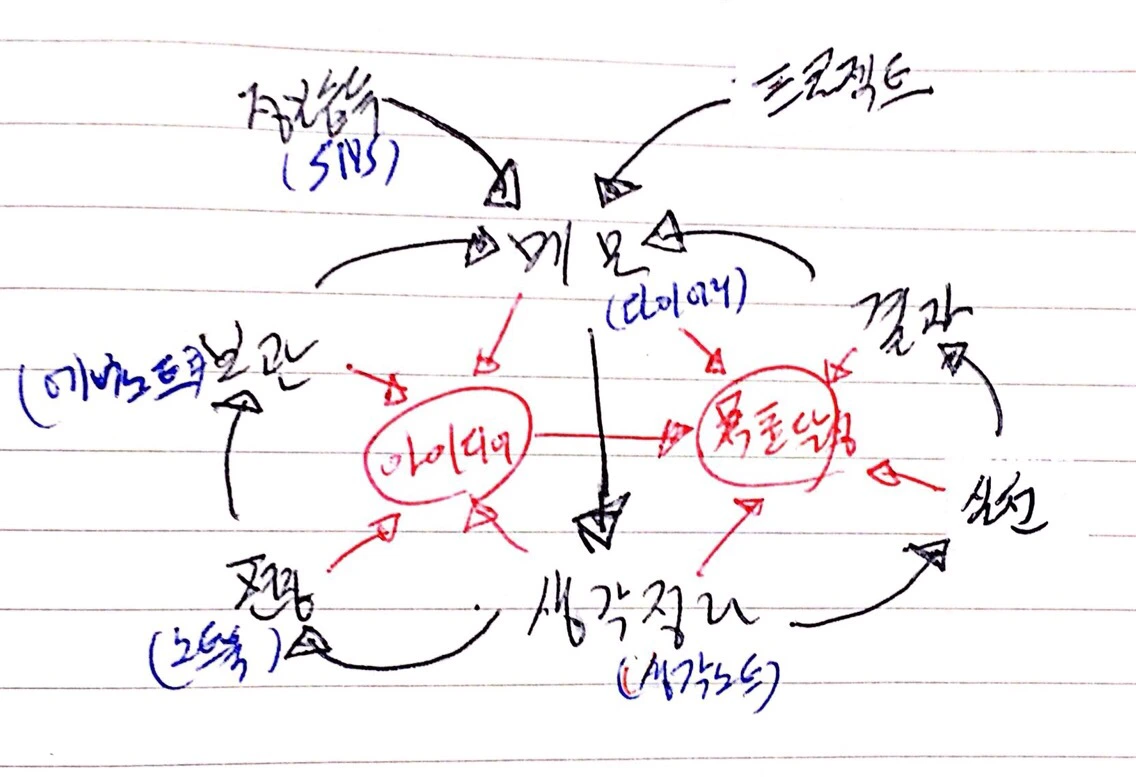 정보습득
(SNS)
프로젝트
메모
(다이어리)
결과
(에버노트)
보관
아이디어
목표달성
실천
생각정리
(생각노트)
(노트북)